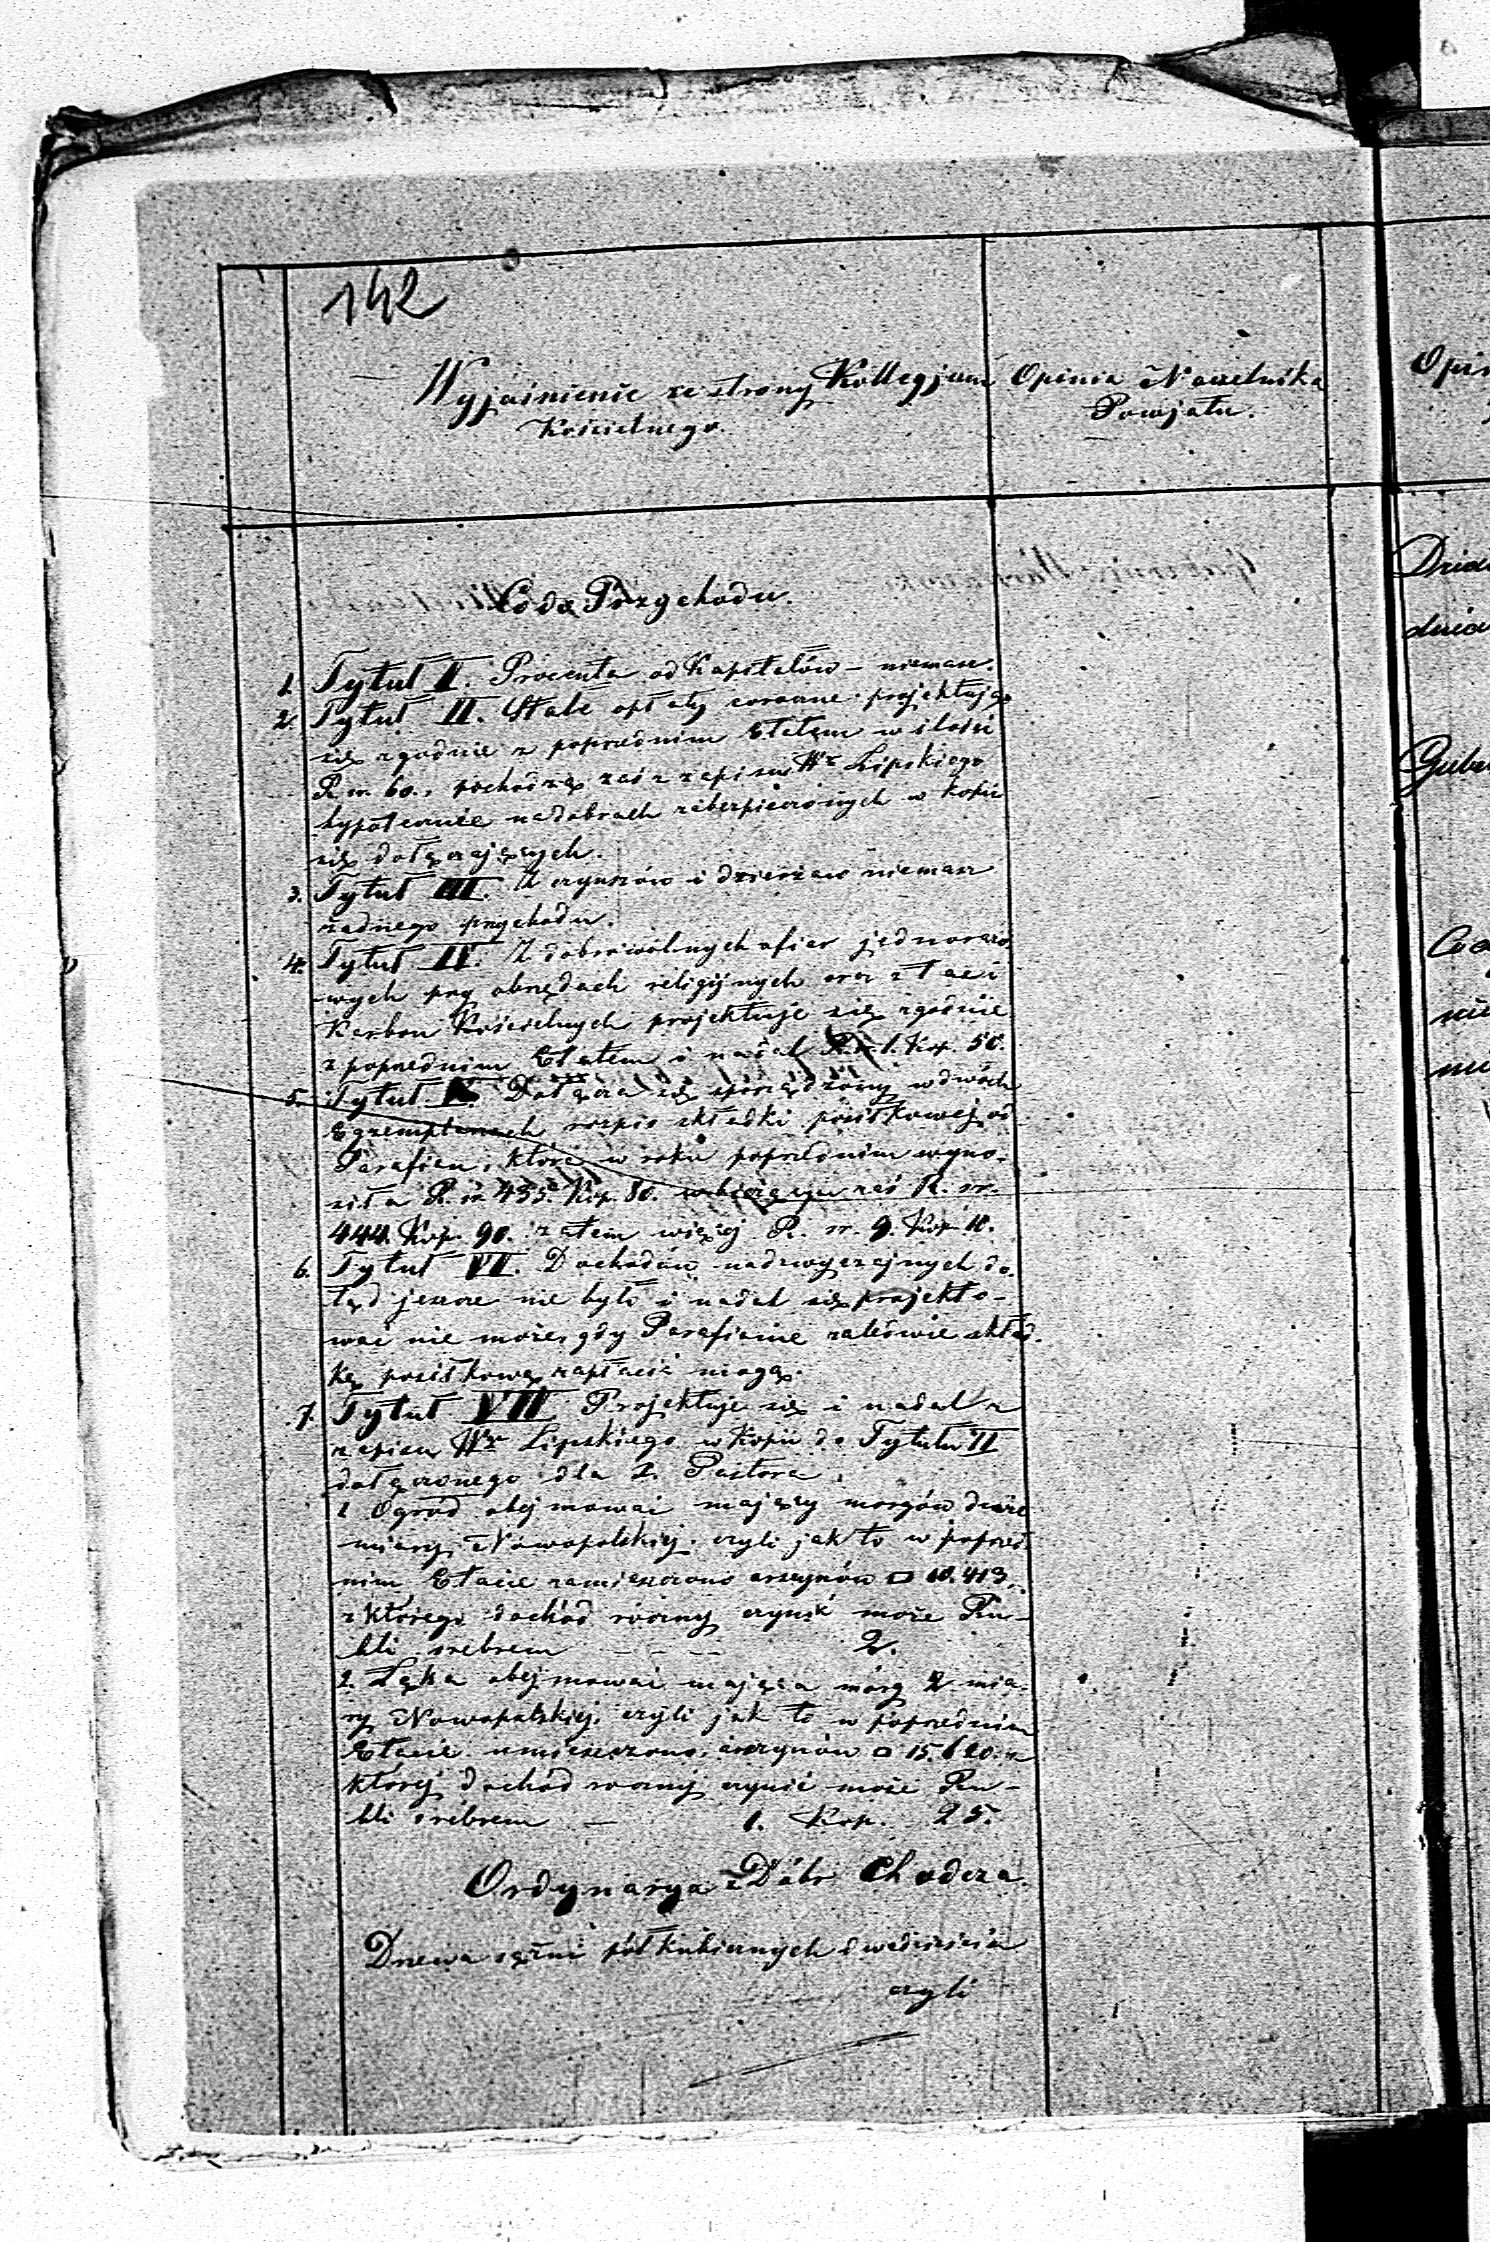 142
Wyjaśnienie ze strony Kollegjum
Kościelnego.
Opinia Naczelnika
Powjatu.
Co do Przychodu.
1. Tytuł I. Procenta od Kapitałów – niemasz.
2. Tytuł II. Stałe opłaty coroczne projektują
się zgodnie z poprzednim Etatem w ilości
R. sr. 60., pochodzą zaś z zapisu Wo Lipskiego
hypotecznie na dobrach zabezpieczonych w kopii
się dołączających.
3. Tytuł III. Z czynszów i dzierżaw niemasz
żadnego przychodu.
4. Tytuł IV. Z dobrowolnych ofiar jednorazo
wych przy obrzędach religijnych oraz z tac i
Karbon Kościelnych projektuje się zgodnie
z poprzednim Etatem i nadal R. sr. 1. Kop. 50.
5. Tytuł V. Dołącza się sporządzony w dwóch
Egzemplarzach rozpis składki posiłkowej od
Parafian, która w roku poprzednim wyno-
siła R. sr. 435. Kop. 80. w bieżącym zaś R. sr.
444. Kop. 90. zatem więcej R. sr. 9. Kop. 10.
6. Tytuł VI. Dochodów nadzwyczajnych do-
tąd jeszcze nie było i nadal się projekto-
wać nie może, gdy Parafianie zaledwie skład-
kę posiłkową zapłacić mogą.
7. Tytuł VII Projektuje się i nadal z
zapisu Wo Lipskiego w Kopii do Tytułu II
dołączonego dla X. Pastora.
1 Ogród obejmować mający morgów dwie
miary Nowopolskiej. czyli jak to w poprzed
nim Etacie zamieszczono arszynów □ 10.413.
z którego dochód roczny czynić może Ru-
bli srebrem – – – 2.
2. Łąka obejmować mająca mórg 2 mia-
ry Nowopolskiej, czyli jak to w poprzednim
Etacie umieszczono, arszynów □ 15.620. z
której dochód roczny czynić może Ru-
bli srebrem – 1. Kop. 25.
Ordynarya z Dóbr Chodcza.
Drzewa sążni pół kubicznych dwadzieścia
czyli